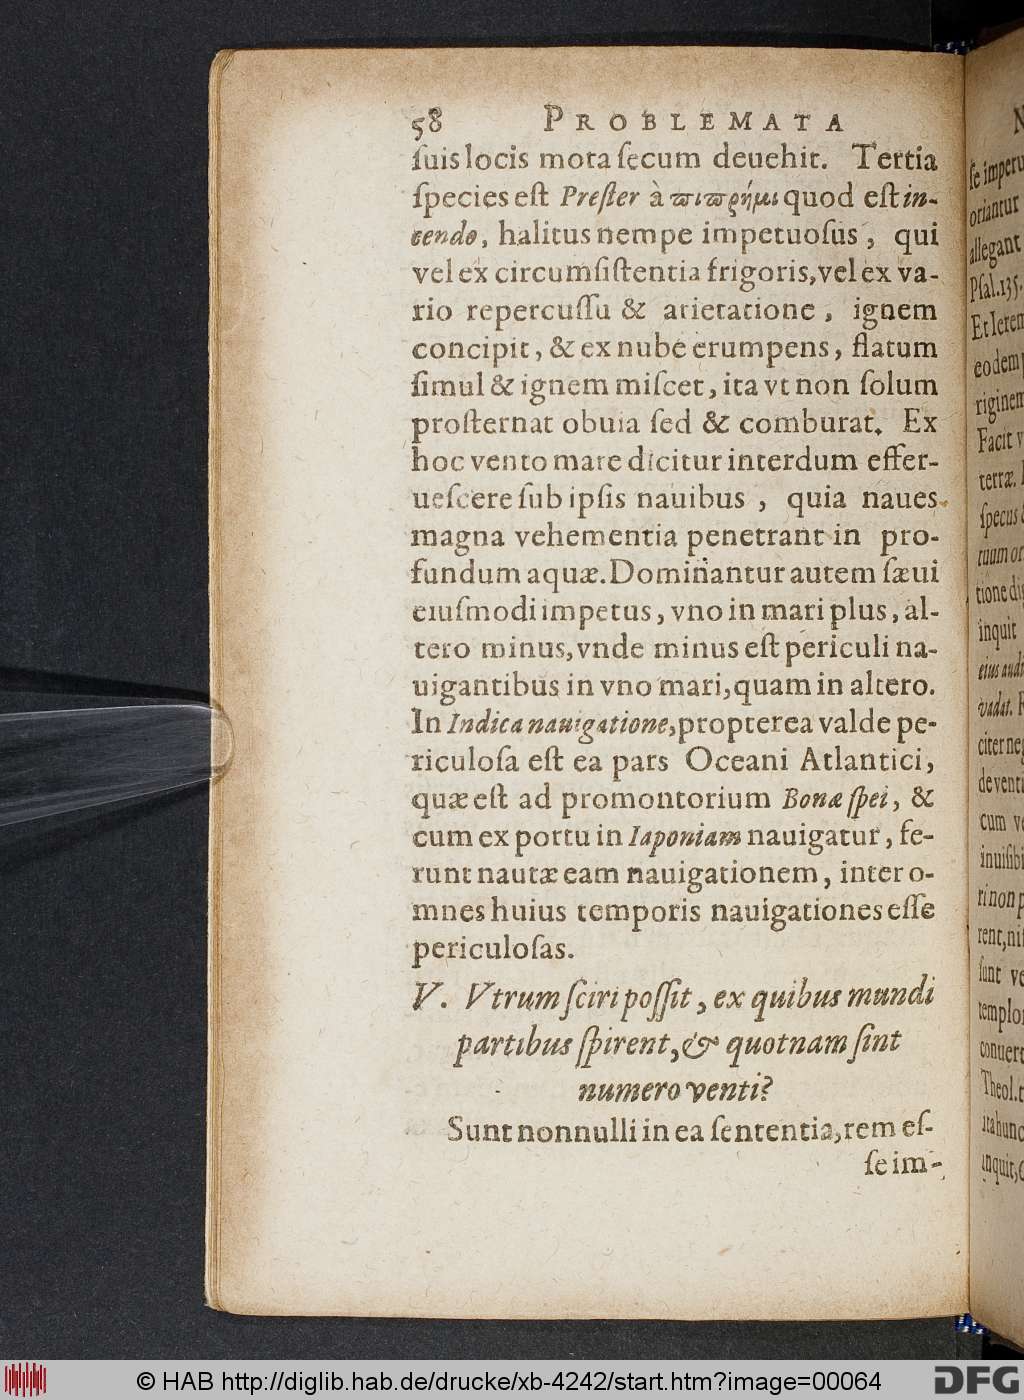 58 PROBLEMATA
ſuis locis mota ſecum deuehit. Tertia
ſpecies eſt Preſter à ϖιϖρήμι quod eſt in-
cendo, halitus nempe impetuoſus, qui
vel ex circumſiſtentia frigoris, vel ex va-
rio repercuſſu & arietatione, ignem
concipit, & ex nube erumpens, flatum
ſimul & ignem miſcet, ita vt non ſolum
proſternat obuia ſed & comburat. Ex
hoc vento mare dicitur interdum effer-
ueſcere ſub ipſis nauibus, quia naues
magna vehementia penetrant in pro-
fundum aquæ. Dominantur autem ſæui
eiuſmodi impetus, vno in mari plus, al-
tero minus, vnde minus eſt periculi na-
uigantibus in vno mari, quam in altero.
In Indica nauigatione, propterea valde pe-
riculoſa eſt ea pars Oceani Atlantici,
quæ eſt ad promontorium Bonæ ſpei, &
cum ex portu in Iaponiam nauigatur, fe-
runt nautæ eam nauigationem, inter o-
mnes huius temporis nauigationes eſſe
periculoſas.
V. Vtrum ſciri poſſit, ex quibus mundi
partibus ſpirent, & quotnam ſint
numero venti?
Sunt nonnulli in ea ſententia, rem eſ-
ſe im-
ſe imperu
oriantur
allegant
Pſal. 135.
Et Ierem
eodem p
riginem
Facit v
terræ.
ſpecus
tuum or
tione di
inquit
eius audi
vadat.
citer neg
de vent
cum ve
inuiſibi
ri non p
rent, niſ
ſunt ve
templo
conuert
Theol. t
ita hunc
inquit,
© HAB http://diglib.hab.de/drucke/xb-4242/start.htm?image=00064
DFG